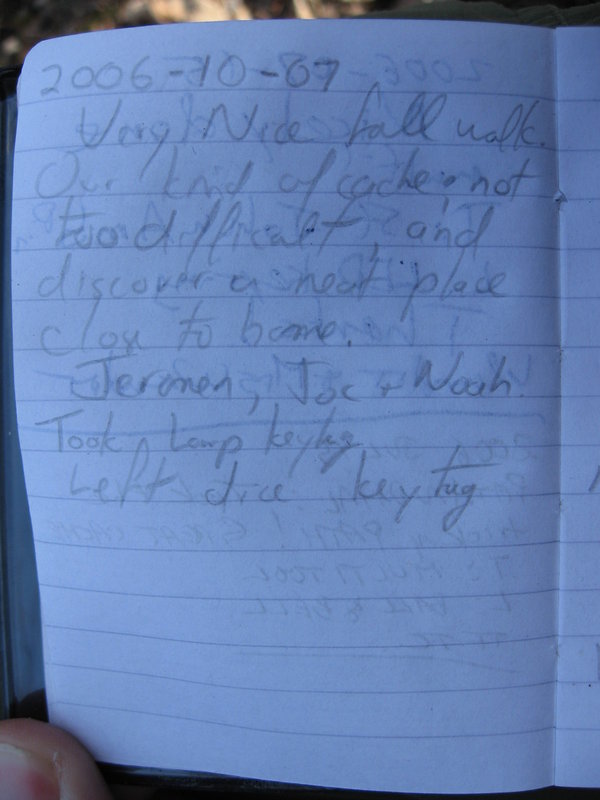 2006-10-07
Very Nice fall walk.
Our knid of cache; not
too difficalt, and
discover a neat place
close to home.
Jeromen, Joc + Noah.
Took Lamp keytag
Left dice key tag